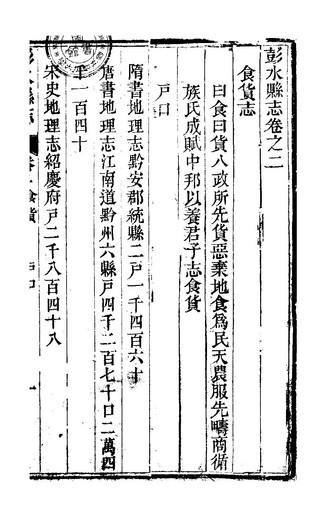 彭水縣志卷之二
食貨志
曰食曰貨八政所先貨惡棄地食為民天農服先疇商循
族氏成賦中邦以養君子志食貨
戶口
隋書地理志黔安郡統縣二戶一千四百六十
唐書地理志江南道黔州六縣戶四千二百七十口二萬四
千一百四十
宋史地理志紹慶府戶二千八百四十八
彭水縣志
食貨
戶口
一